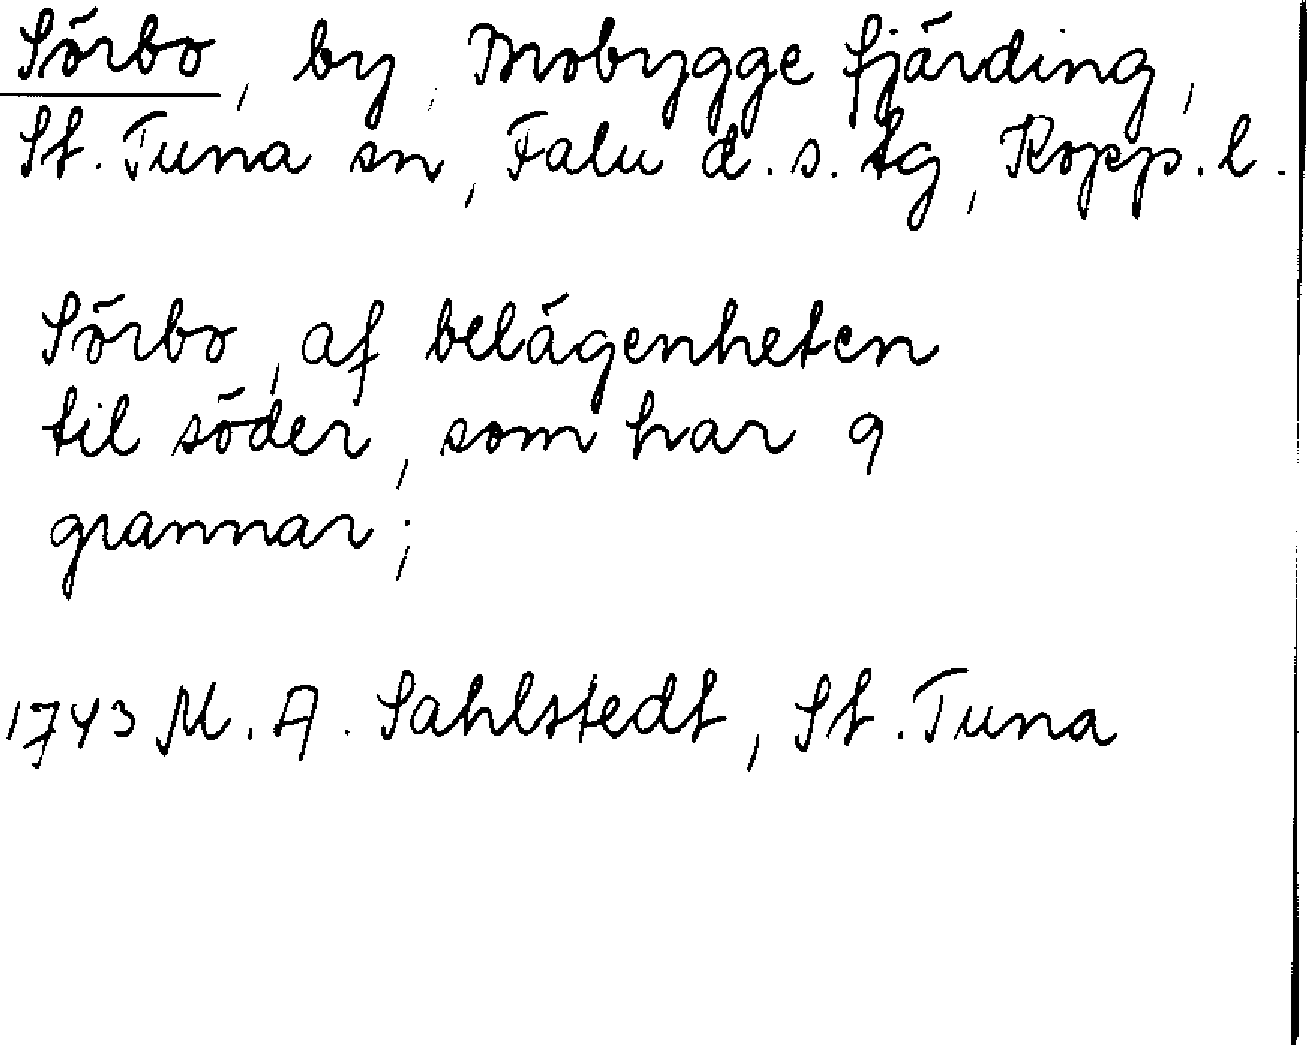 Sörbo, by, Mobygge fjärding,
St. Tuna sn, Falu d. s. tg, Kopp. l.
Sörbo, af belägenheten
til söder, som har 9
grannar;
1743 M. A. Sahlstedt, St. Tuna